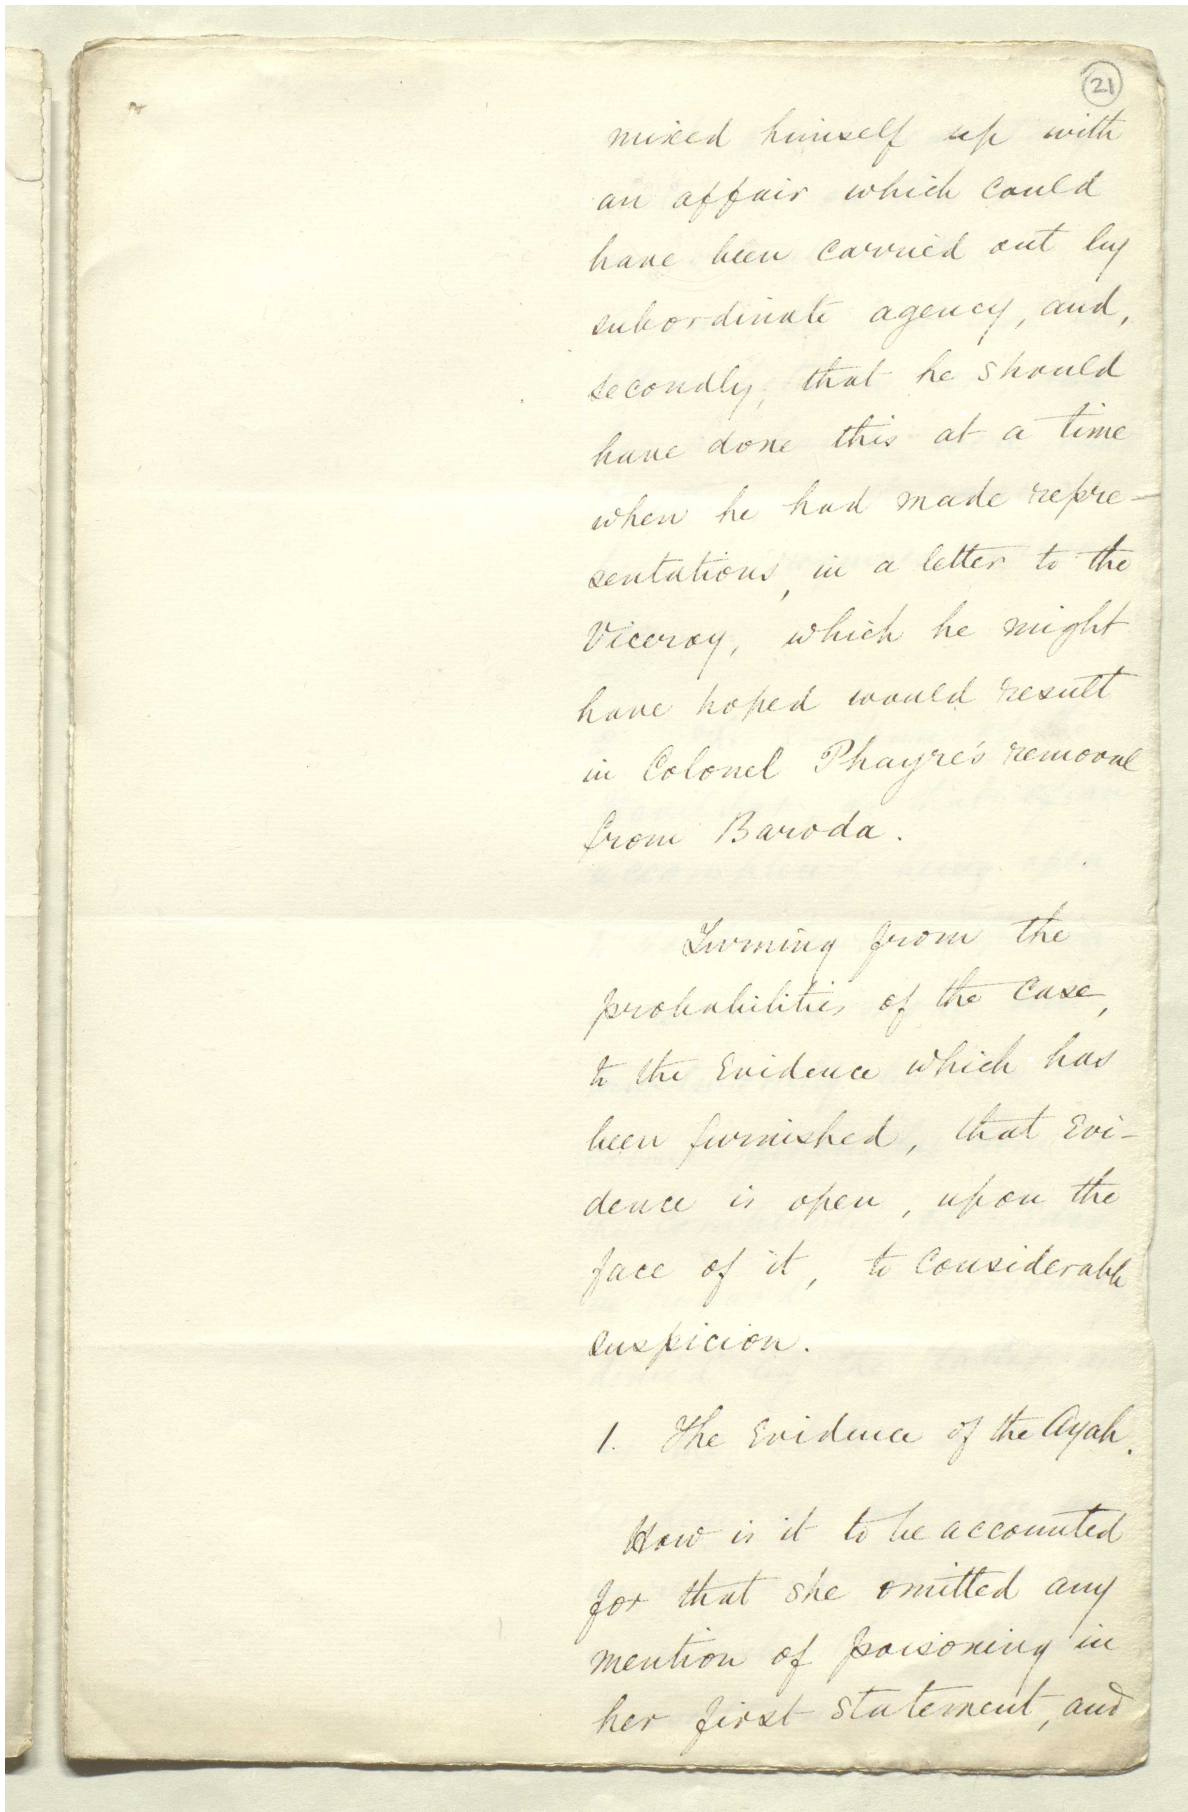 21
mixed himself up with
an affair which could
have been carried out by
subordinate agency, and,
secondly, that he should
have done this at a time
when he had made repre-
sentations, in a letter to the
Viceroy, which he might
have hoped would result
in Colonel Phayre's removal
from Baroda.
Turning from the
probabilities of the Case,
to the Evidence which has
been furnished, that Evi-
dence is open, upon the
face of it, to Considerable
suspicion.
1. The Evidence of the Ayah.
How is it to be accounted
for that she omitted any
mention of poisoning in
her first statement, and